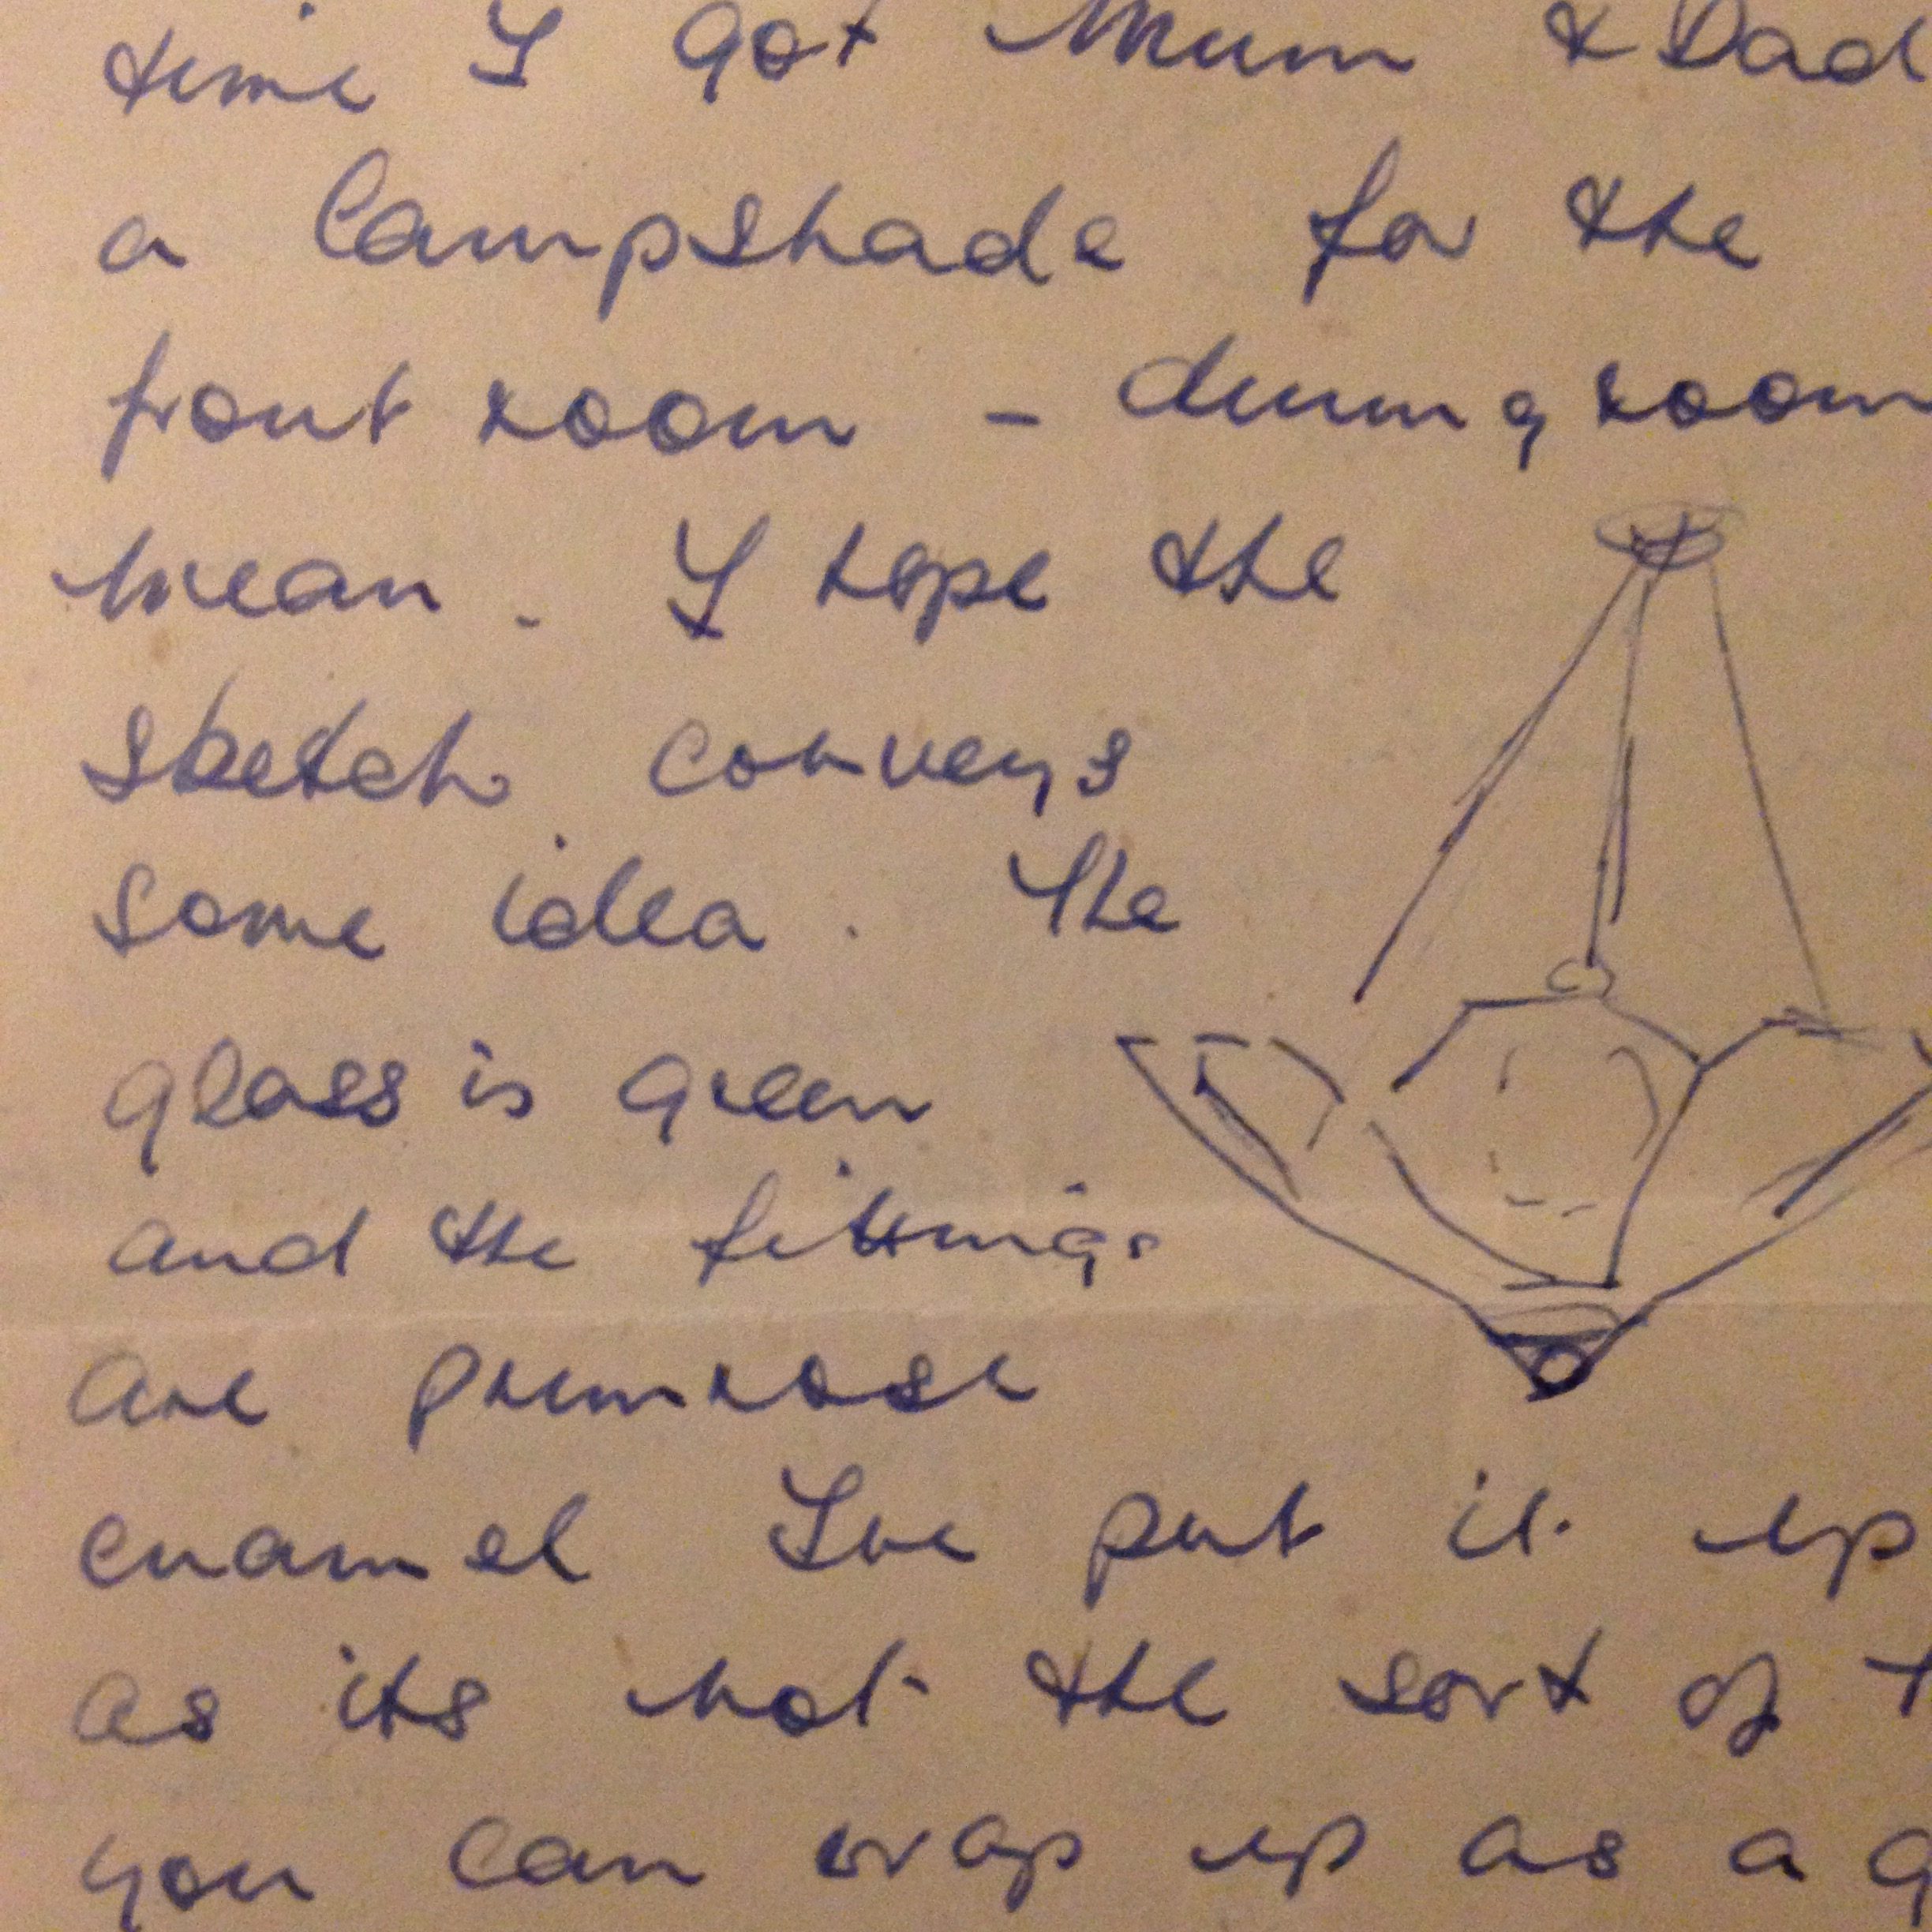 time I got Mum & Dad
a lampshade for the
front room - dining room
mean. I hope the
sketch conveys
some idea. The
glass is green
and the fittings
are primrose
enamel Ive put it up
as its not the sort of
you can wrap up as a